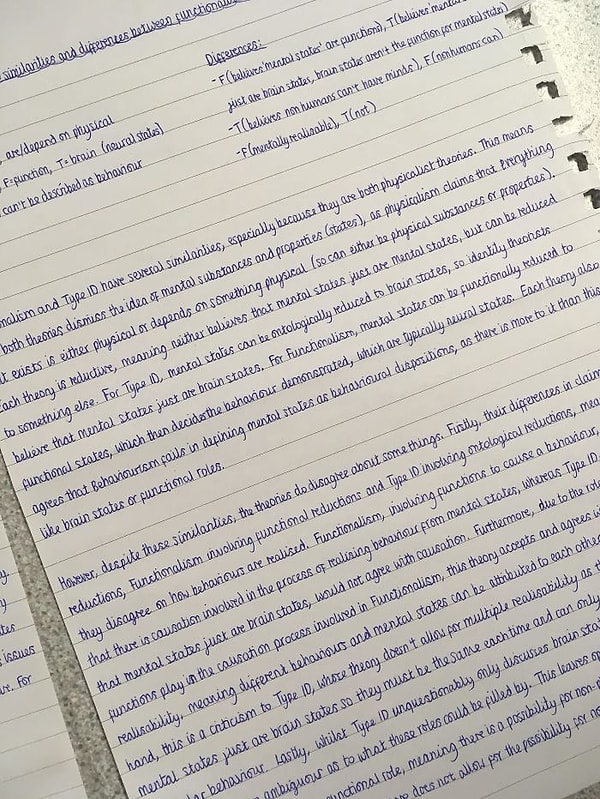 similarities and differences between
Differences:
- F (believes 'mental states' are functions), T (believes 'mental states'
just are brain states, brain states aren't the function for mental states)
- T (believes non humans can't have minds), F (nonhumans can)
- F (mentally realisable), T (not)
are/depend on physical
F = function, T = brain (neural states)
can't be described as behaviour
and Type ID have several similarities, especially because they are both physicalist theories. This means
both theories dismiss the idea of mental substances and properties (states), as physicalism claims that everything
exists is either physical or depends on something physical (so can either be physical substances or properties).
Each theory is reductive, meaning neither believes that mental states just are mental states, but can be reduced
to something else. For Type ID, mental states can be ontologically reduced to brain states, so identity theorists
believe that mental states just are brain states. For Functionalism, mental states can be functionally reduced to
functional states, which then decides the behaviour demonstrated, which are typically neural states. Each theory also
agrees that Behaviourism fails in defining mental states as behavioural dispositions, as there is more to it than this
like brain states or functional roles.
However, despite these similarities, the theories do disagree about some things. Firstly, their differences in
reductions, Functionalism involving functional reductions and Type ID involving ontological reductions,
they disagree on how behaviours are realised. Functionalism, involving functions to cause a behaviour,
that there is causation involved in the process of realising behaviour from mental states, whereas Type ID
that mental states just are brain states, would not agree with causation. Furthermore, due to the
functions play in the causation process involved in Functionalism, this theory accepts and agrees
realisability, meaning different behaviours and mental states can be attributed to each other
hand, this is a criticism to Type ID, whose theory doesn't allow for multiple realisability as
mental states just are brain states so they must be the same each time and can only
behaviour. Lastly, whilst Type ID unquestionably only discusses brain
ambiguous as to what these roles could be filled by. This leaves
functional role, meaning there is a possibility for
does not allow for the possibility for
issues
For